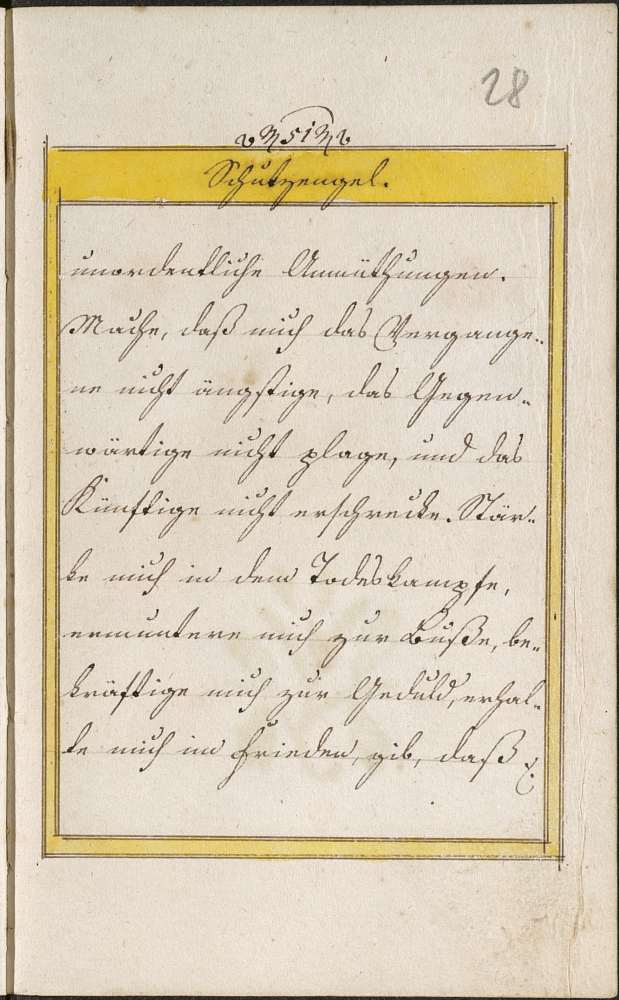 28
51
Schutzengel.
unordentliche Anmüthungen.
Mache, daß mich das Vergange-
ne nicht ängstige, das Gegen-
wärtige nicht plage, und das
Künftige nicht erschrecke. Stär-
ke mich in dem Todeskampfe,
ermuntere mich zur Buße, be-
kräftige mich zur Geduld, erhal-
te mich im Frieden, gib, daß